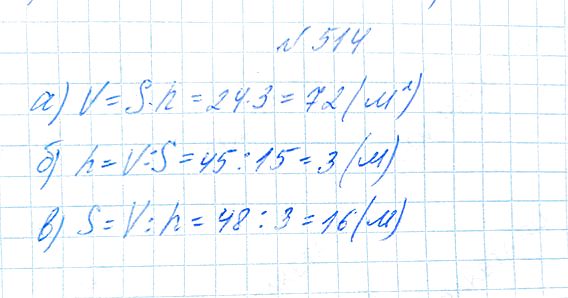 № 514
а) V = S · h = 24 · 3 = 72 (м²)
б) h = V : S = 45 : 15 = 3 (м)
в) S = V : h = 48 : 3 = 16 (м)